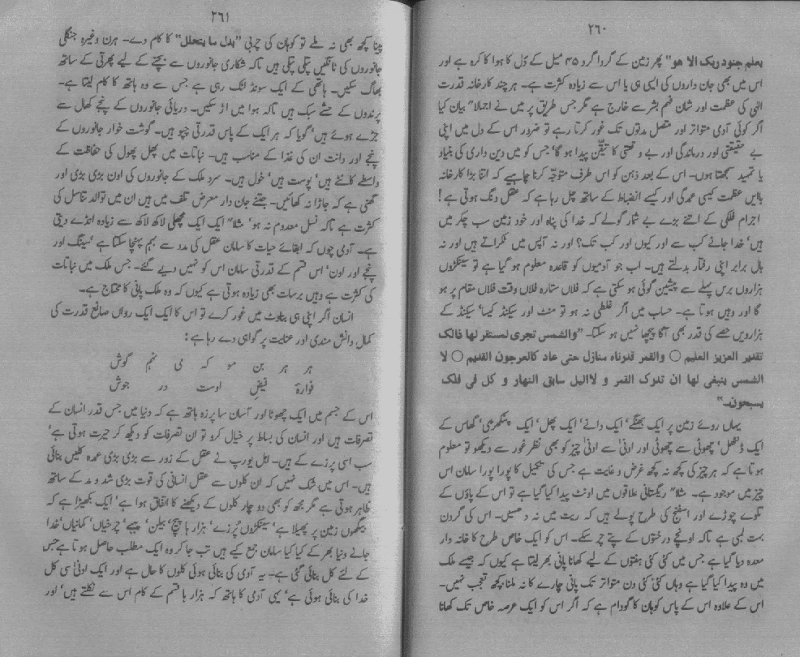 ۲۶۰
یعلم جنود ربک الا ھو" پھر زمین کے گردا گرد ۴۵ میل کے دَل کا ہوا کا کرہ ہے اور
اس میں بھی جان داروں کی ایسی ہی یا اس سے زیادہ کثرت ہے۔ ہرچند کارخانہ قدرت
الٰہی کی عظمت اور شان فہم بشر سے خارج ہے مگر جس طریق پر میں نے اجمالاً بیان کیا
اگر کوئی آدمی متواتر اور متصل مدتوں تک غور کرتا رہے تو ضرور اس کے دل میں اپنی
بے حقیقتی اور درماندگی اور بے وقعتی کا تیقّن پیدا ہو گا' جس کو میں دین داری کی بنیاد
یا تمہید سمجھتا ہوں۔ اس کے بعد ذہن کو اس طرف متوجّہ کرنا چاہیے کہ اتنا بڑا کارخانہ
بایں عظمت کیسی عمدگی اور کیسے انضباط کے ساتھ چل رہا ہے کہ عقل دنگ ہوتی ہے!
اجرام فلکی کے اتنے بڑے بے شمار گولے کہ خدا کی پناہ اور خود زمین سب چکر میں
ہیں' خدا جانے کب سے اور کیوں اور کب تک؟ اور نہ آپس میں ٹکراتے ہیں اور نہ
بال برابر اپنی رفتار بدلتے ہیں۔ اب جو آدمیوں کو قاعدہ معلوم ہو گیا ہے تو سینکڑوں
ہزاروں برس پہلے سے پیشین گوئی ہو سکتی ہے کہ فلاں ستارہ فلاں وقت فلاں مقام پر ہو
گا اور وہیں ہوتا ہے۔ حساب میں اگر غلطی نہ ہو تو منٹ اور سیکنڈ کیسا' سیکنڈ کے
ہزارویں حصے کی قدر بھی آگا پیچھا نہیں ہو سکتا۔ "والشمس تجری لمستقر لھا ذالک
تقدیر العزیز العلیم ○ والقمر قدرناہ منازل حتی عاد کالعرجون القدیم ○ لا
الشمس ینبغی لھا ان تدرک القمر و لا اللیل سابق النھار و کل فی فلک
یسبحون۔"
یہاں روئے زمین پر ایک بھنگے' ایک دانے' ایک پھل' ایک پنکھڑی' گھاس کے
ایک ڈنٹھل' چھوٹی سے چھوٹی اور ادنیٰ سے ادنیٰ چیز کو بھی نظر غور سے دیکھو تو معلوم
ہوتا ہے کہ ہر چیز کی کچھ نہ کچھ غرض و غایت ہے جس کی تکمیل کا پورا پورا سامان اس
چیز میں موجود ہے۔ مثلاً" ریگستانی علاقوں میں اونٹ پیدا کیا گیا ہے تو اس کے پاؤں کے
تلوے چوڑے اور اسفنج کی طرح پولے ہیں کہ ریت میں نہ دھنسیں۔ اس کی گردن
بہت لمبی ہے تاکہ اونچے درختوں کے پتے چر سکے۔ اس کو ایک خاص طرح کا خانہ دار
معدہ دیا گیا ہے جس میں کئی کئی ہفتوں کے لیے کھانا پانی بھر لیتا ہے کیوں کہ جیسے ملک
میں وہ پیدا کیا گیا ہے وہاں کئی کئی دن متواتر تک پانی چارے کا نہ ملنا کچھ تعجب نہیں۔
اس کے علاوہ اس کے پاس کوہان کا گودام ہے کہ اگر اس کو ایک عرصہ خاص تک کھانا
۲۶۱
پینا کچھ بھی نہ ملے تو کوہان کی چربی "بدل ما یتحلل" کا کام دے۔ ہرن وغیرہ جنگلی
جانوروں کی ٹانگیں پتلی پتلی ہیں تاکہ شکاری جانوروں سے بچنے کے لیے پھرتی کے ساتھ
بھاگ سکیں۔ ہاتھی کے ایک سونڈ لٹک رہی ہے جس سے وہ ہاتھ کا کام لیتا ہے۔
پرندوں کے جثے سبک ہیں تاکہ ہوا میں اڑ سکیں۔ دریائی جانوروں کے پنجے کھال سے
جڑے ہوئے ہیں' گویا کہ ہر ایک کے پاس قدرتی چپو ہیں۔ گوشت خوار جانوروں کے
پنجے اور دانت ان کی غذا کے مناسب ہیں۔ نباتات میں پھل پھول کی حفاظت کے
واسطے کانٹے ہیں' پوست ہیں' خول ہیں۔ سرد ملک کے جانوروں کی اون بڑی بڑی اور
گھنی ہے کہ جاڑا نہ کھائیں۔ جتنے جان دار معرض تلف میں ہیں ان میں توالد تناسل کی
کثرت ہے تاکہ نسل معدوم نہ ہو' مثلاً" ایک ایک مچھلی لاکھ لاکھ سے زیادہ انڈے دیتی
ہے۔ آدمی چوں کہ ابقائے حیات کا سامان عقل کی مدد سے بہم پہنچا سکتا ہے' سینگ اور
پنجے اور اون' اس قسم کے قدرتی سامان اس کو نہیں دیے گئے۔ جس ملک میں نباتات
کی کثرت ہے وہیں برسات بھی زیادہ ہوتی ہے کیوں کہ وہ ملک پانی کا محتاج ہے۔
انسان اگر اپنی ہی بناوٹ میں غور کرے تو اس کا ایک ایک رواں صانع قدرت کی
کمال دانش مندی اور عنایت پر گواہی دے رہا ہے:
ہر ہر بن مو کہ می نہم گوش
فوارۂ فیض اوست در جوش
اس کے جسم میں ایک چھوٹا اور آسان سا پرزہ ہاتھ ہے کہ دنیا میں جس قدر انسان کے
تصرفات ہیں اور انسان کی بساط پر خیال کرو تو ان تصرفات کو دیکھ کر حیرت ہوتی ہے'
سب اسی پرزے کے ہیں۔ اہل یورپ نے عقل کے زور سے بڑی بڑی عمدہ کلیں بنائی
ہیں۔ اس میں شک نہیں کہ ان کلوں سے عقل انسانی کی قوت بڑی شد و مد کے ساتھ
ظاہر ہوتی ہے مگر مجھ کو بھی دو چار کلوں کے دیکھنے کا اتفاق ہوا ہے' ایک بکھیڑا ہے کہ
بیگھوں زمین پر پھیلا ہے' سینکڑوں پرزے' ہزارہا پیچ' بیلن' پہیے' چرخیاں' کمانیاں' خدا
جانے دنیا بھر کے کیا کیا سامان جمع کیے ہیں تب جا کر وہ ایک مطلب حاصل ہوتا ہے جس
کے لئے کل بنائی گئی ہے۔ یہ آدمی کی بنائی ہوئی کلوں کا حال ہے اور ایک ادنیٰ سی کل
خدا کی بنائی ہوئی ہے' یہی آدمی کا ہاتھ کہ ہزارہا قسم کے کام اس سے نکلتے ہیں' اور